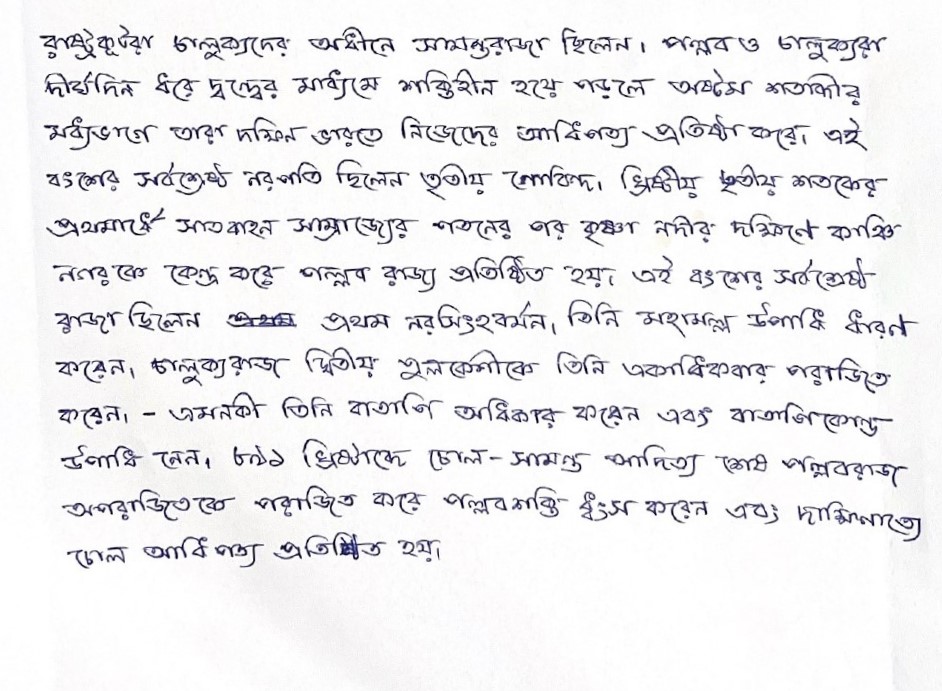 রাষ্ট্রকূটরা চালুক্যদের অধীনে সামন্তরাজা ছিলেন। পল্লব ও চালুক্যরা
দীর্ঘদিন ধরে দ্বন্দ্বের মাধ্যমে শক্তিহীন হয়ে পড়লে অষ্টম শতাব্দীর
মধ্যভাগে তারা দক্ষিন ভারতে নিজেদের আধিপত্য প্রতিষ্ঠা করে। এই
বংশের সর্বশ্রেষ্ঠ নরপতি ছিলেন তৃতীয় গোবিন্দ। খ্রিষ্টীয় তৃতীয় শতকের
প্রথমার্ধে সাতবাহন সাম্রাজ্যের পতনের পর কৃষ্ণা নদীর দক্ষিণে কাঞ্চি
নগরকে কেন্দ্র করে পল্লব রাজ্য প্রতিষ্ঠিত হয়। এই বংশের সর্বশ্রেষ্ঠ
রাজা ছিলেন প্রথম নরসিংহবর্মন। তিনি মহামল্ল উপাধি ধারণ
করেন। চালুক্যরাজ দ্বিতীয় পুলকেশীকে তিনি একাধিকবার পরাজিত
করেন। - এমনকী তিনি বাতাপি অধিকার করেন এবং বাতাপিকোন্ড
উপাধি নেন। ৮৯১ খ্রিষ্টাব্দে চোল-সামন্ত আদিত্য শেষ পল্লবরাজ
অপরাজিতকে পরাজিত করে পল্লবশক্তি ধ্বংস করেন এবং দাক্ষিনাত্যে
চোল আধিপত্য প্রতিষ্ঠিত হয়।